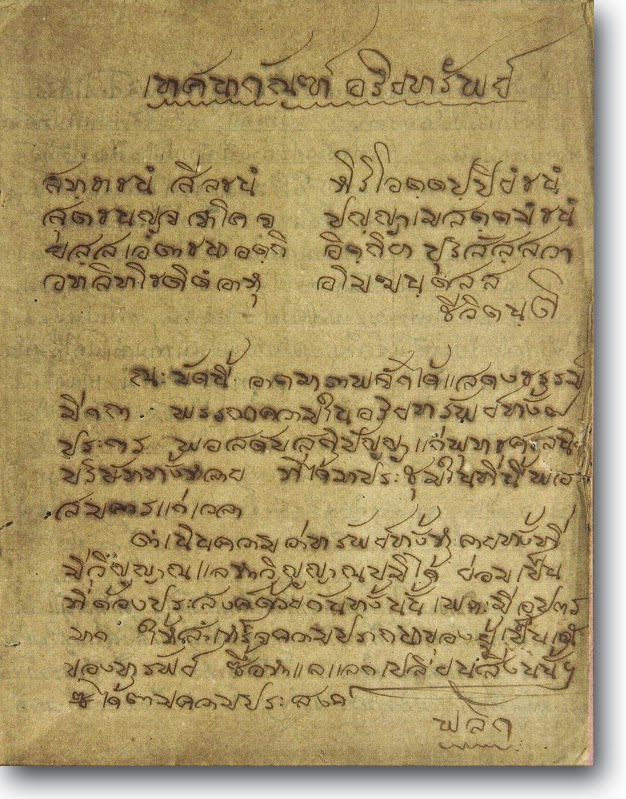 เทศนากัณฑ์ อริยทรัพย์
สทฺธาธนํ สีลธนํ หิริโอตตปฺปิยํ ธนํ
สุตธนญฺจ จาโค จ ปญฺญาเมสตฺตมํธนํ
ยสฺสเอตาธนาอตฺถิ อิตฺถิยา ปุริสสฺสวา
อทลิทฺโทติตํอาหุ อโมฆนฺตสฺส
ชีวิตนฺติ
ณะบัดนี้ อาตมาภาพจักได้แสดงธรรม
มีกถา พรรณาความในอริยทรัพย์ทั้ง๗
ประการ พอสดบสติปัญญา แก่พุทธศาสนิก
บริษัททั้งหลาย ที่ได้มาประชุมในที่นี้พอ
สมควรแก่เวลา
ดำเนินความว่าทรัพย์ทั้งหลายทั้งที่
มีวิญญาณแลหาวิญญาณบมิได้ ย่อมเป็น
ที่ต้องประสงค์ด้วยกันทั้งนั้น เพาะมีอุปการ
มาก ให้สำเร็จความปรารถนาของผู้เป็นเจ้า
ของทรัพย์ ซื้อหาแลแลกเปลี่ยนสิ่งนั้นๆ
ได้ตามความประสงค์
พลิก